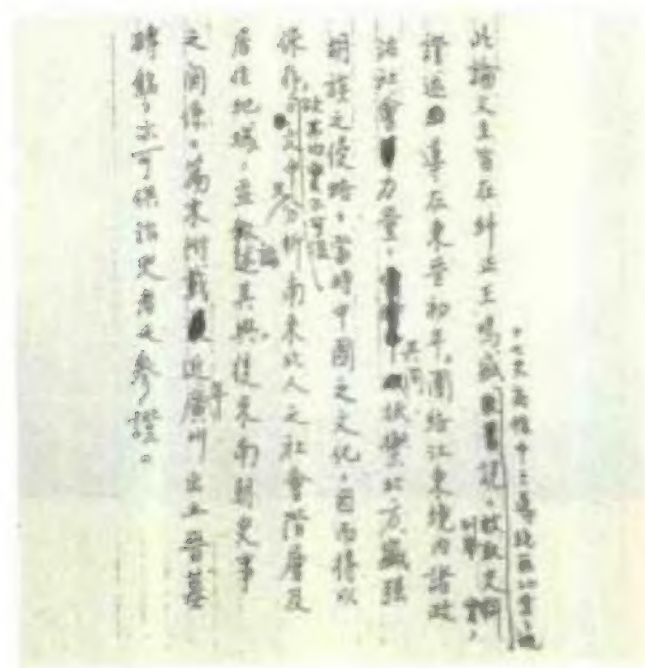 十七史商榷中王導
此論文主旨在糾正王鳴盛說
證述導在東晉初年，團結江東境內諸政
治社會力量，共同抵禦北方
胡族之侵略，當時中國之文化，因而得以
保存
文中分析南來北人之社會階層及
居住地域，並述其與後來南朝史事
之關係。篇末附載近年廣州出土晉墓
磚銘，亦可供治史者之參證。